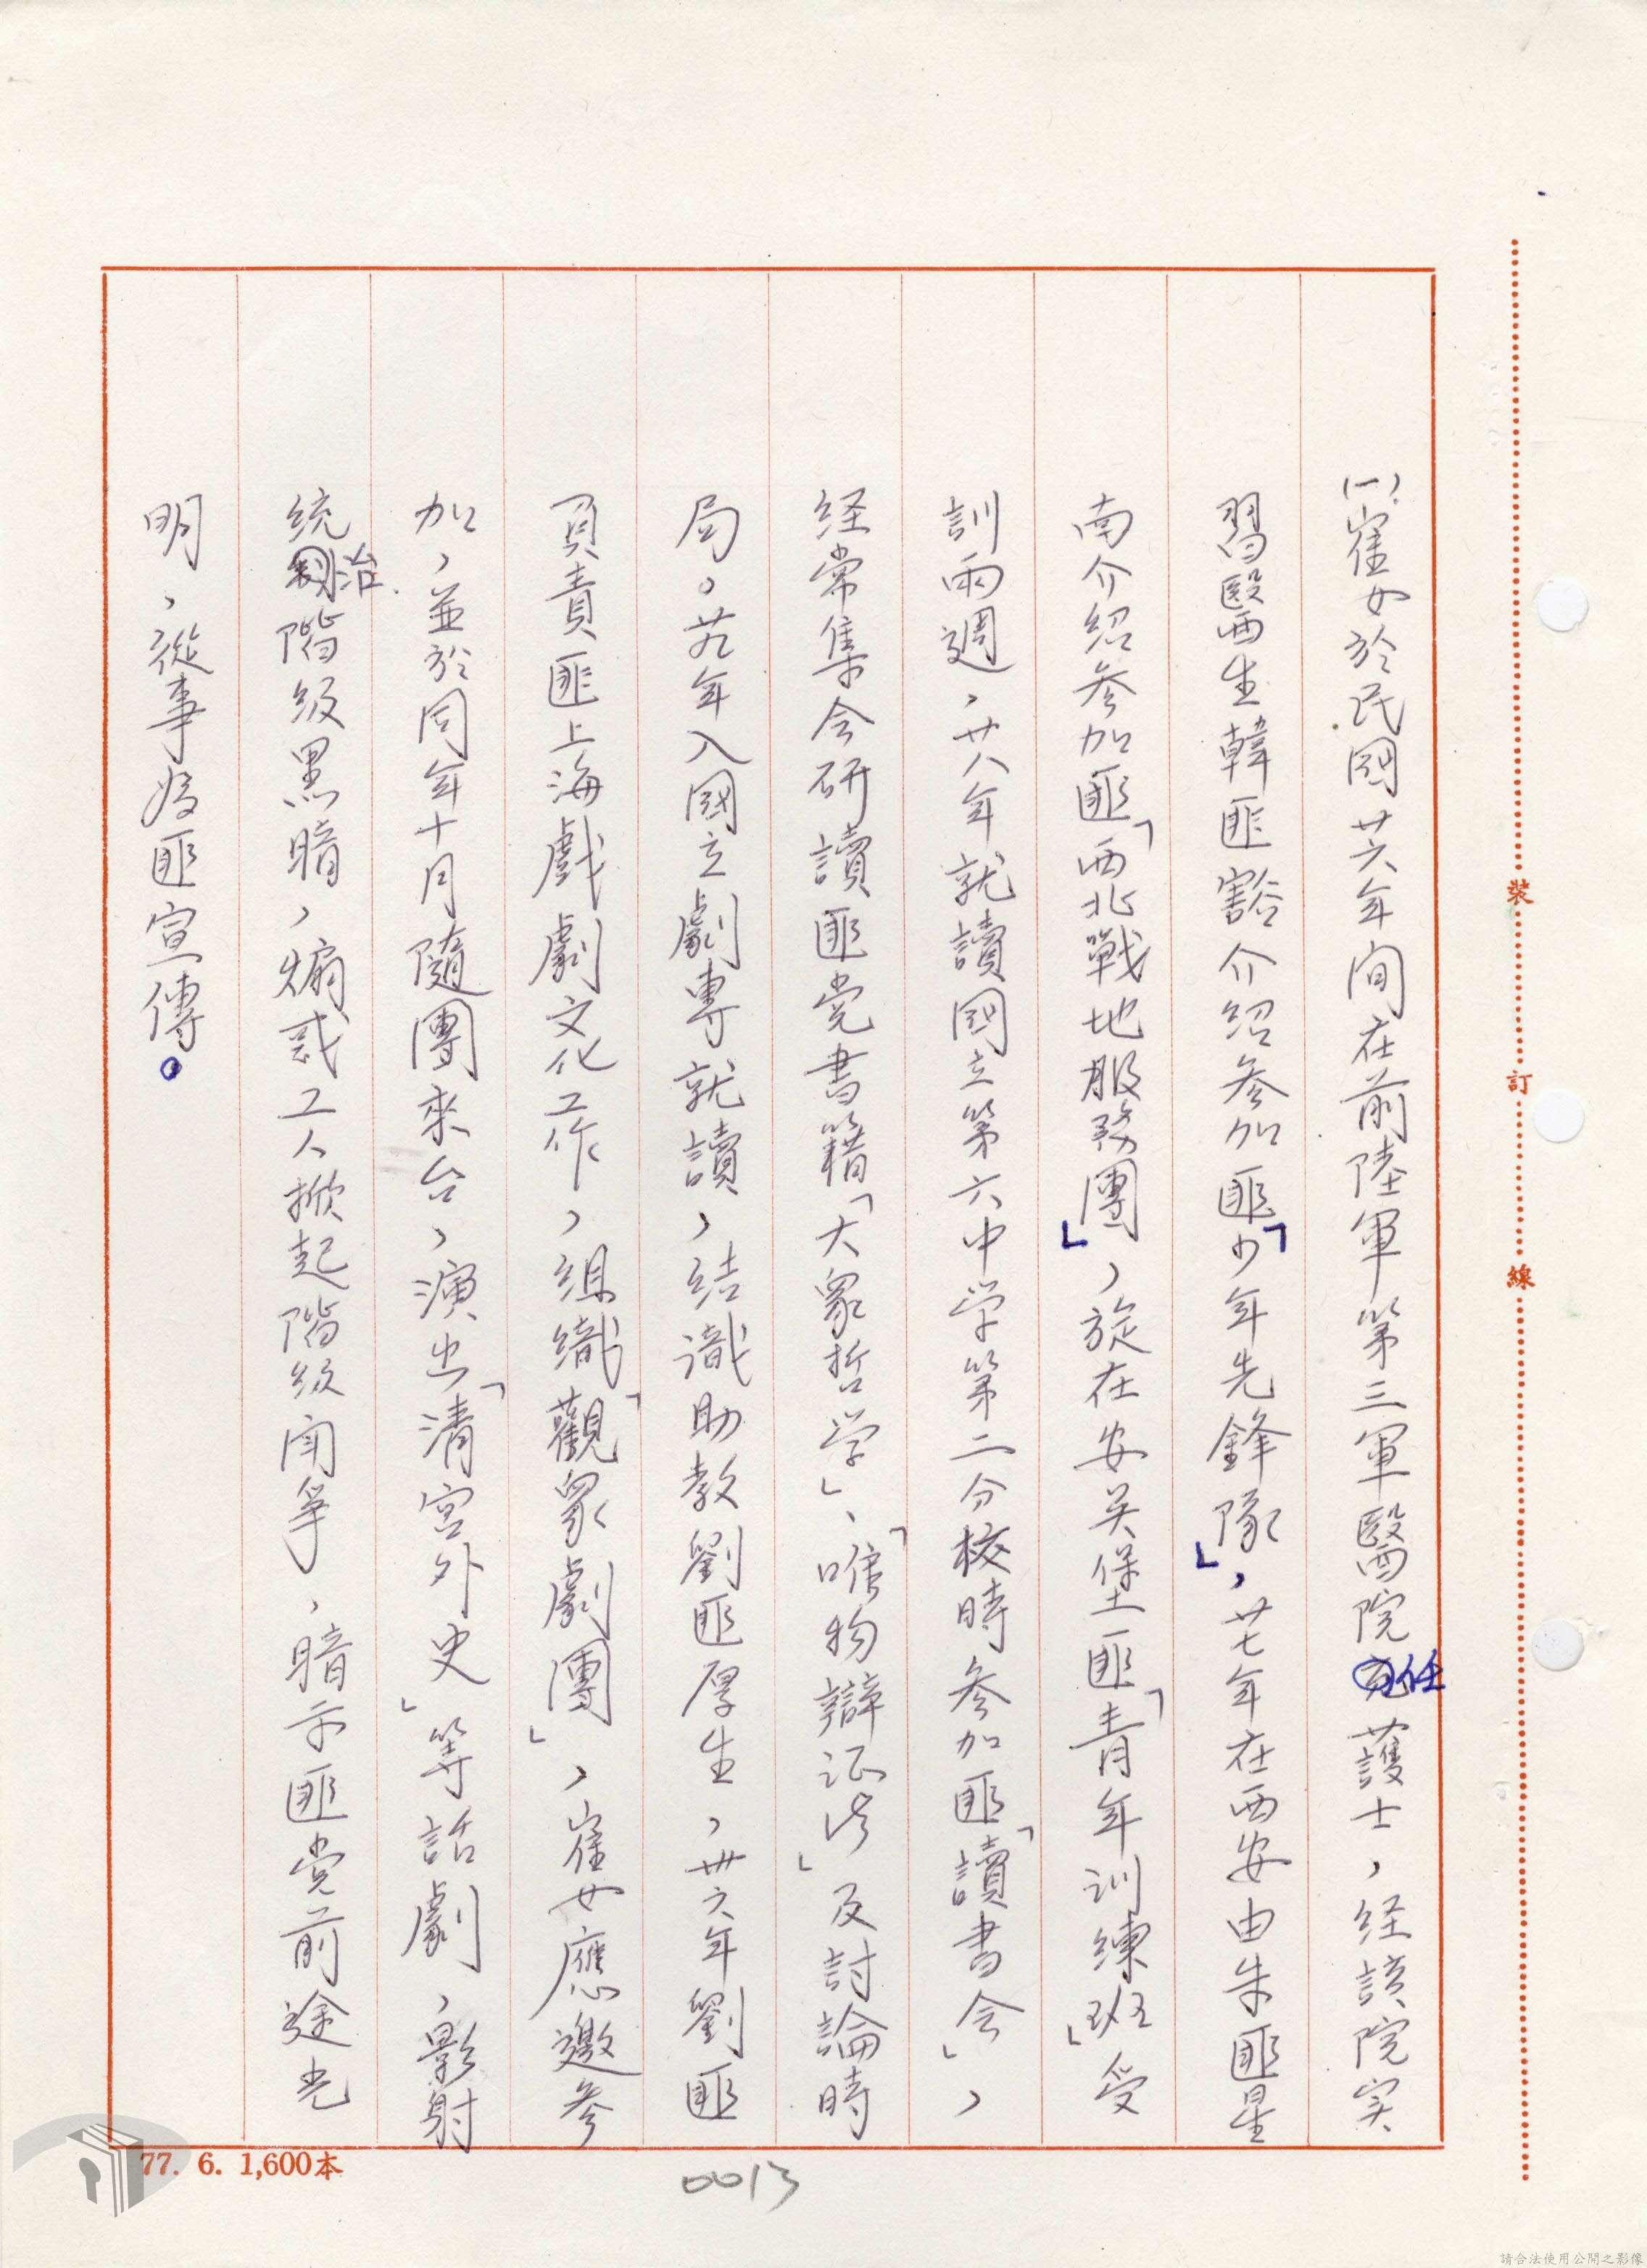 (一)崔女於民國廿六年间在前陸軍第三軍醫院任護士，経該院实
習醫生韓匪豁介绍参加匪「少年先鋒隊」，廿七年在西安由朱匪星
南介绍参加匪「西北戰地服務團」，旋在安吴堡匪「青年訓練班」受
訓兩週，廿八年就讀國立第六中学第二分校時参加匪「讀書会」，
経常集会研讀匪党書籍「大眾哲学」、「唯物辯证法」及討論時
局。廿九年入國立劇專就讀，结識助教劉匪厚生，卅六年劉匪
負責匪上海戲劇文化工作，组織「觀眾劇團」，崔女應邀参
加，並於同年十月隨團來台，演出「清宮外史」等話劇，影射
統治階级黑暗，煽惑工人掀起階级闘爭，暗示匪党前途光
明，從事為匪宣傳。
裝
訂
線
77. 6. 1,600本
0013
請合法使用公開之影像